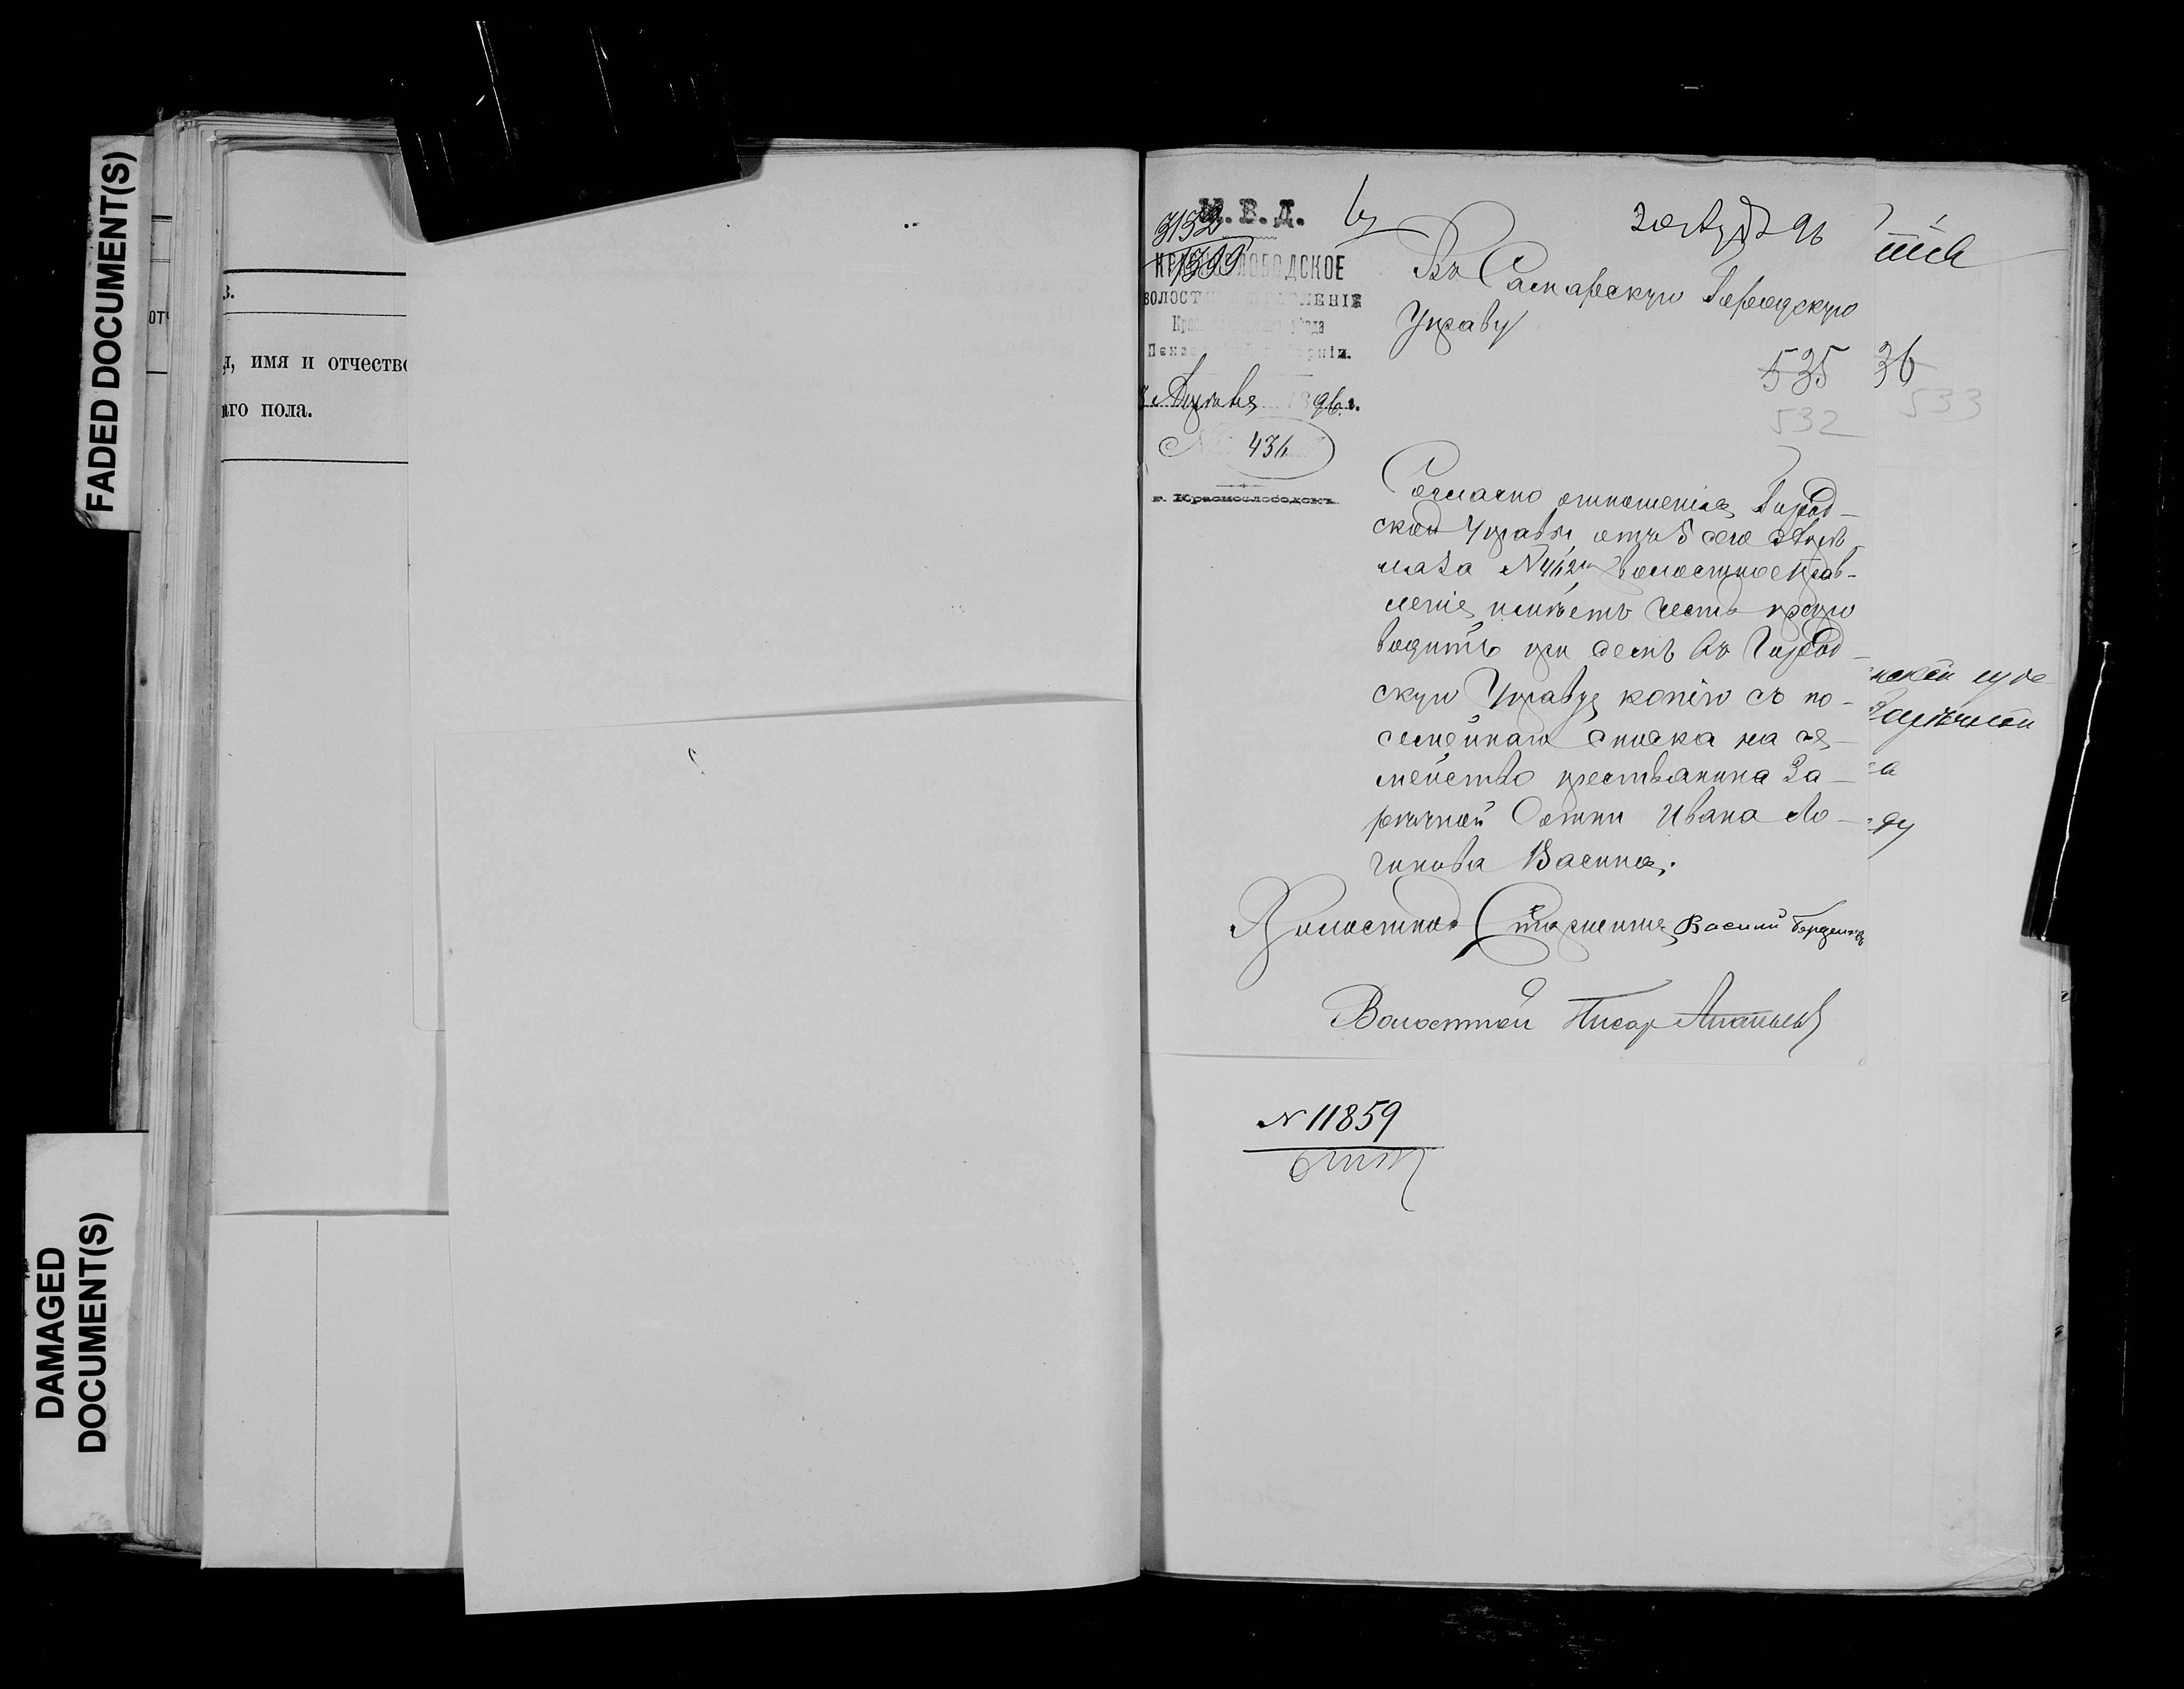 FADED DOCUMENT(S)
DAMAGED
DOCUMENT(S)
в.
я, имя и отчество
аго пола.
М. В. Д.
3132
1399
КРАСНОСЛОБОДСКОЕ
ВОЛОСТНОЕ ПРАВЛЕНІЕ
Краснослободскаго уѣзда
Пензенской губерніи.
Августа 1896 г.
№ 436
г. Краснослободскъ
20 Авг 96
Въ Самарскую Городскую
Управу
535 36
532 533
Согласно отношенія Город-
ской Управы отъ 5 сего Авгу
ста за № волостное Прав-
леніе имѣетъ честь препро
водить при семъ въ Город-
скую Управу копію съ по-
семейнаго списка на се-
мейство крестьянина За-
рѣчной Сотни Ивана Ло-
гинова Васина.
Волостной Старшина Василий
Волостной Писарь
№ 11859